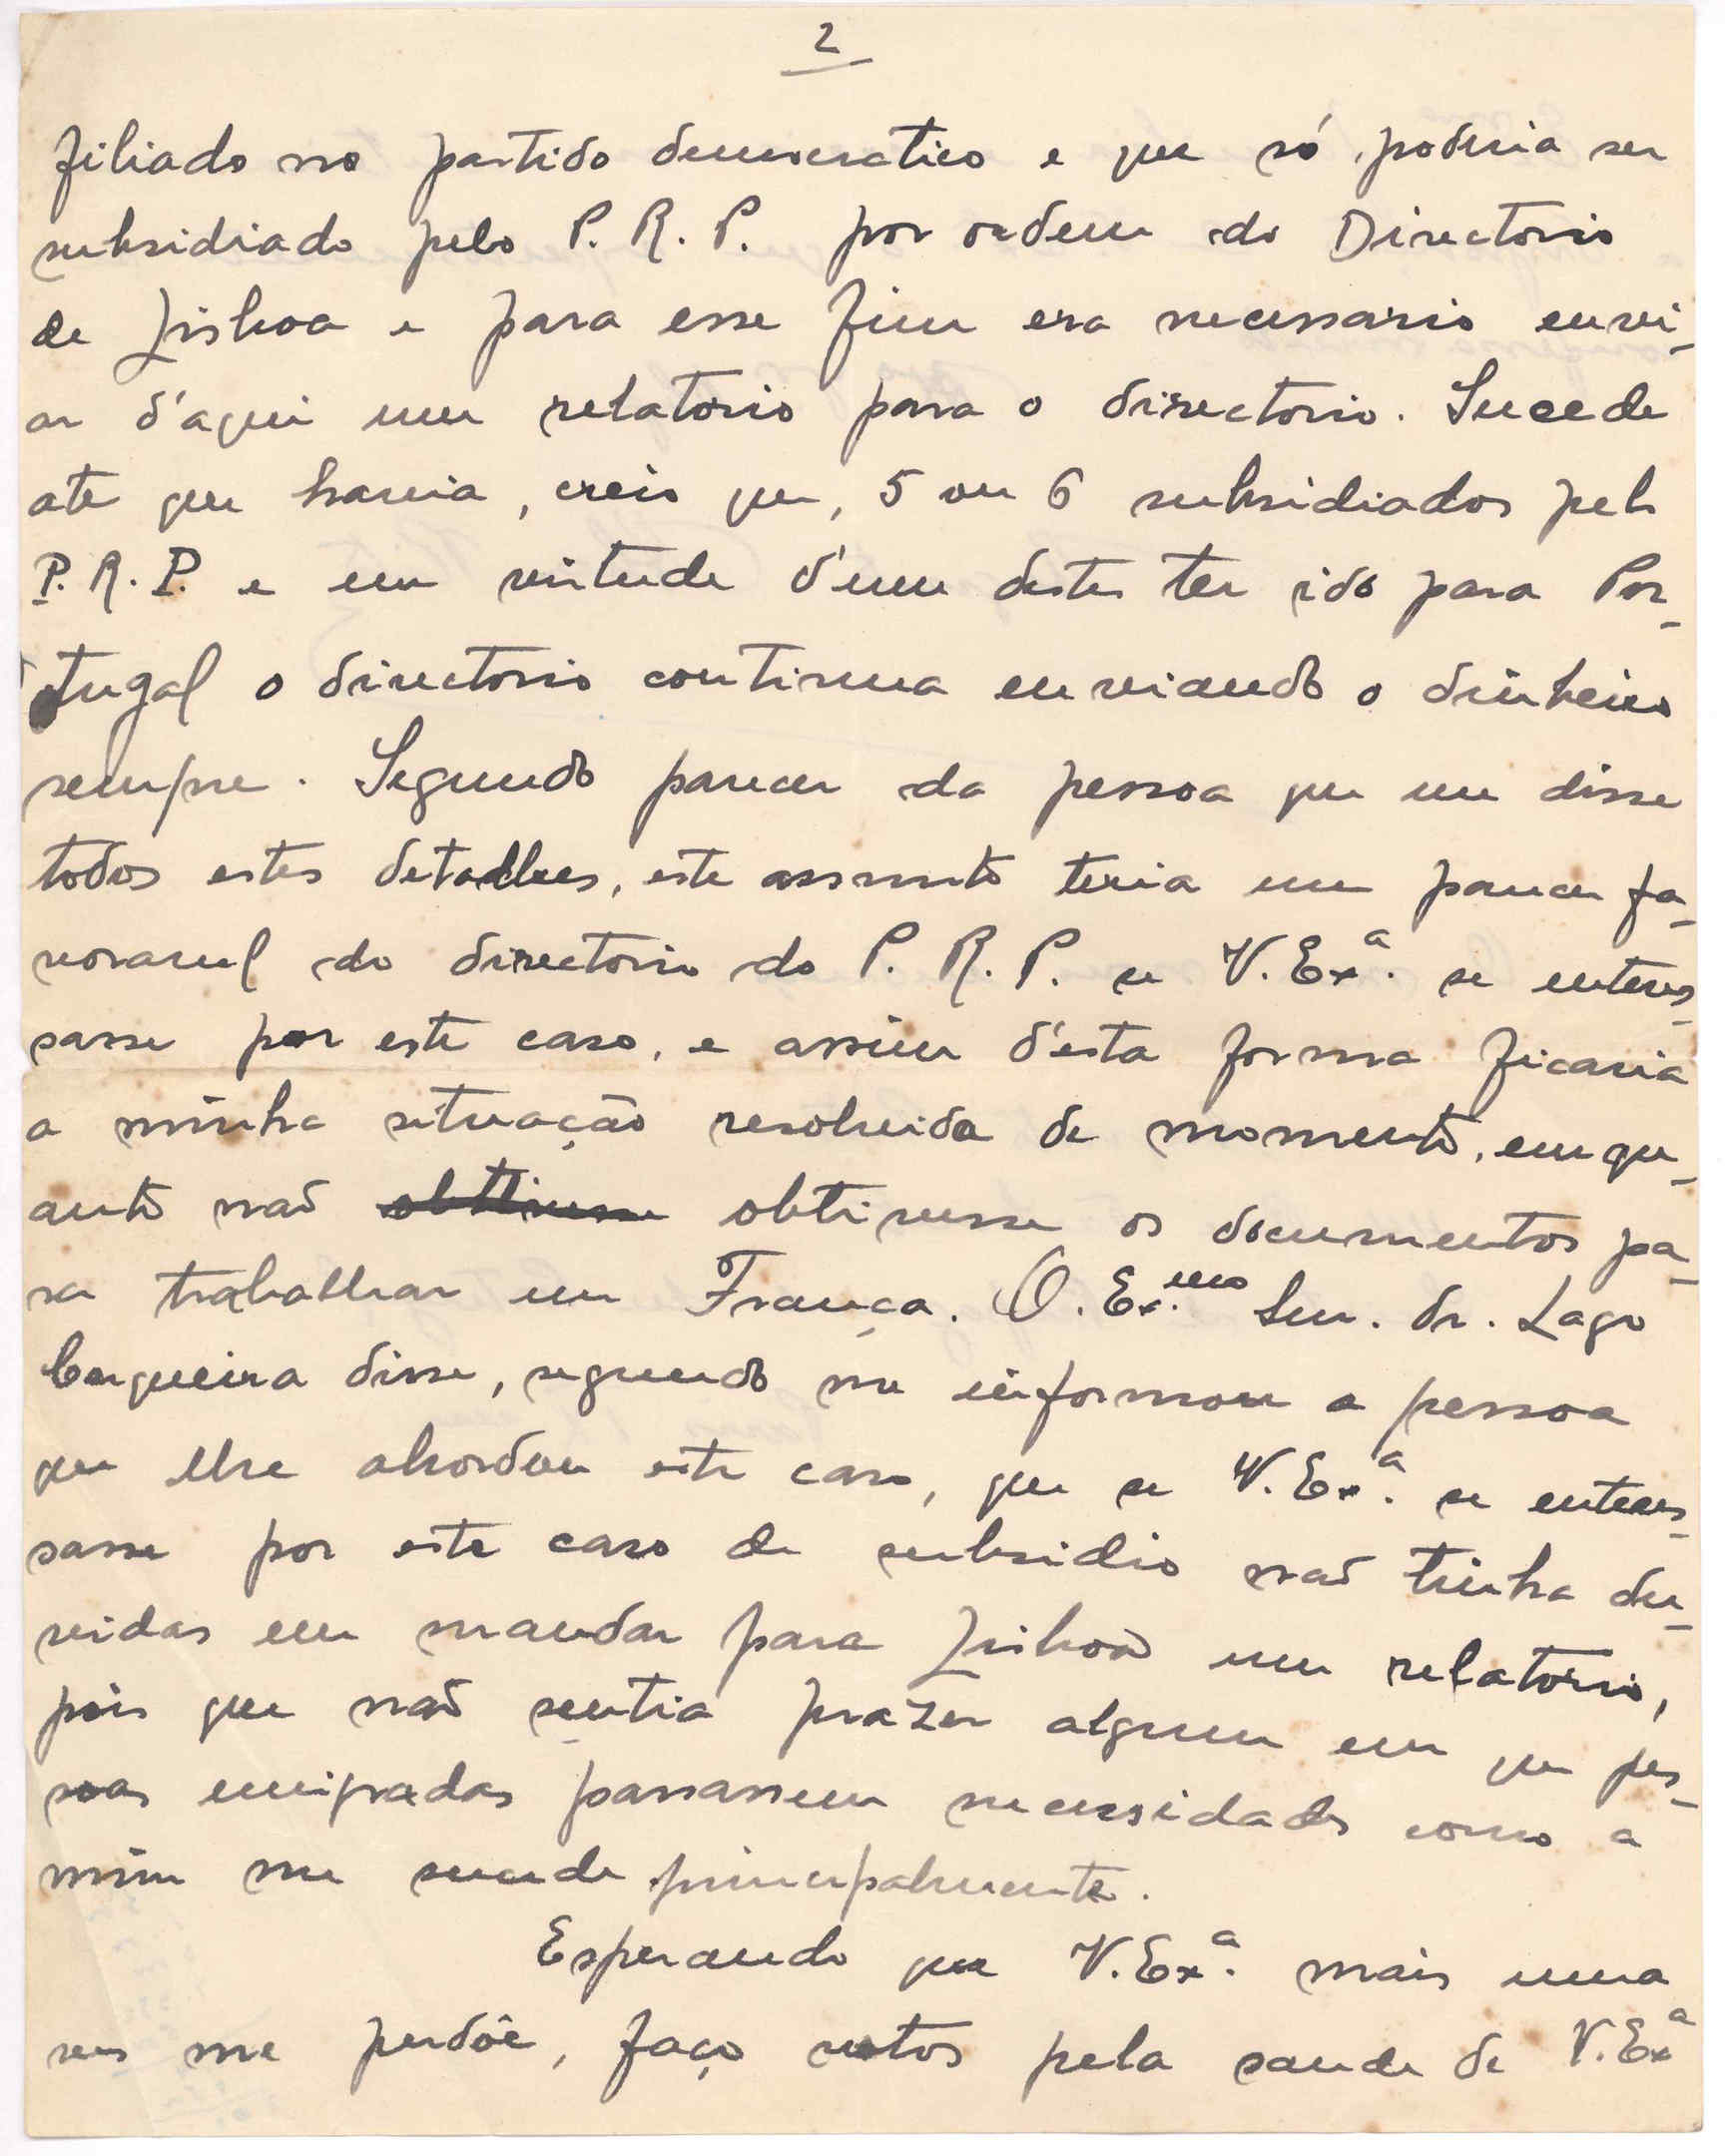 2
filiado no partido democratico e que só poderia ser
subsidiado pelo P. R. P. por ordem do Directorio
de Lisboa e para esse fim era necessario envi-
ar d'aqui um relatorio para o directorio. Sucede
ate que havia, creio que, 5 ou 6 subsidiados pelo
P. R. P. e em virtude d'um destes ter ido para Por-
tugal o directorio continua enviando o dinheiro
sempre. Segundo parecer da pessoa que me disse
todos estes detalhes, este assunto teria um parecer fa-
voravel do directorio do P. R. P. se V. Exª. se enteres-
sasse por este caso, e assim d'esta forma ficaria
a minha situação resolvida de momento, emqu-
anto naõ obtivesse obtivesse os documentos pa-
ra trabalhar em França. O. Ex.mo Snr. dr. Lago
Cerqueira disse, segundo me informou a pessoa
que lhe abordou este caso, que se V. Exª. se enteres-
sasse por este caso de subsidio naõ tinha du-
vidas em mandar para Lisboa um relatorio,
pois que naõ sentia prazer algum em que pes-
soas emigradas passassem necessidades como a
mim me sucede principalmente.
Esperando que V. Exª. mais uma
ves me perdõe, faço votos pela saude de V. Exª